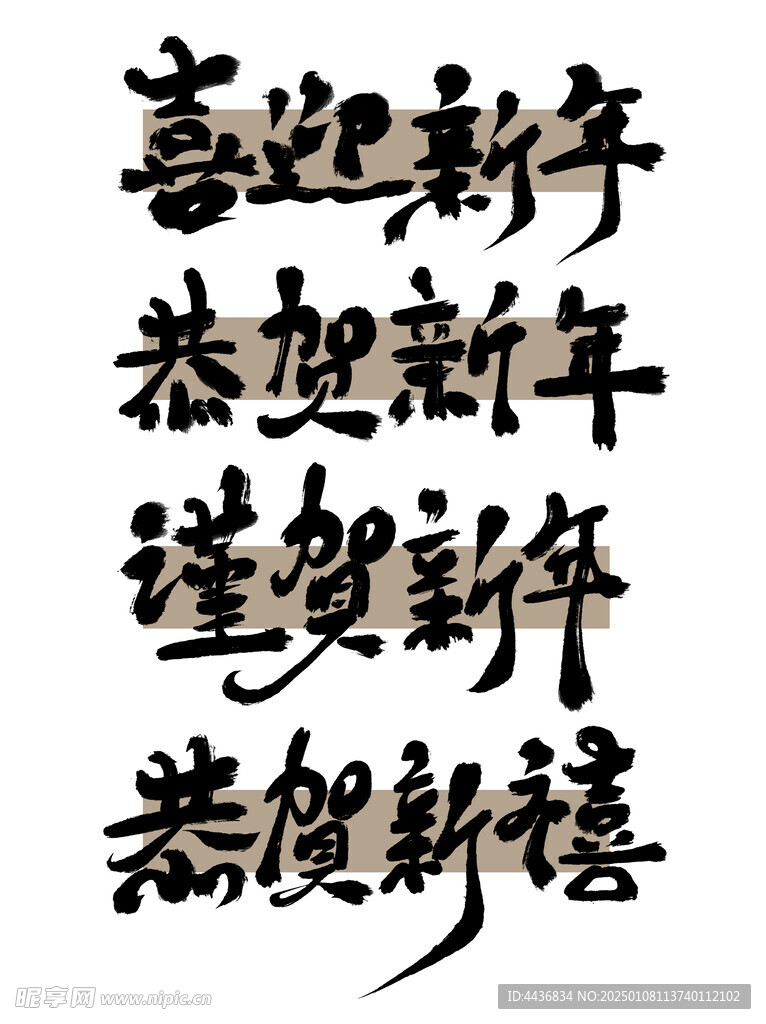 喜迎新年
恭贺新年
谨贺新年
恭贺新禧
昵享网 www.nipic.cn
ID:4436834 NO:20250108113740112102